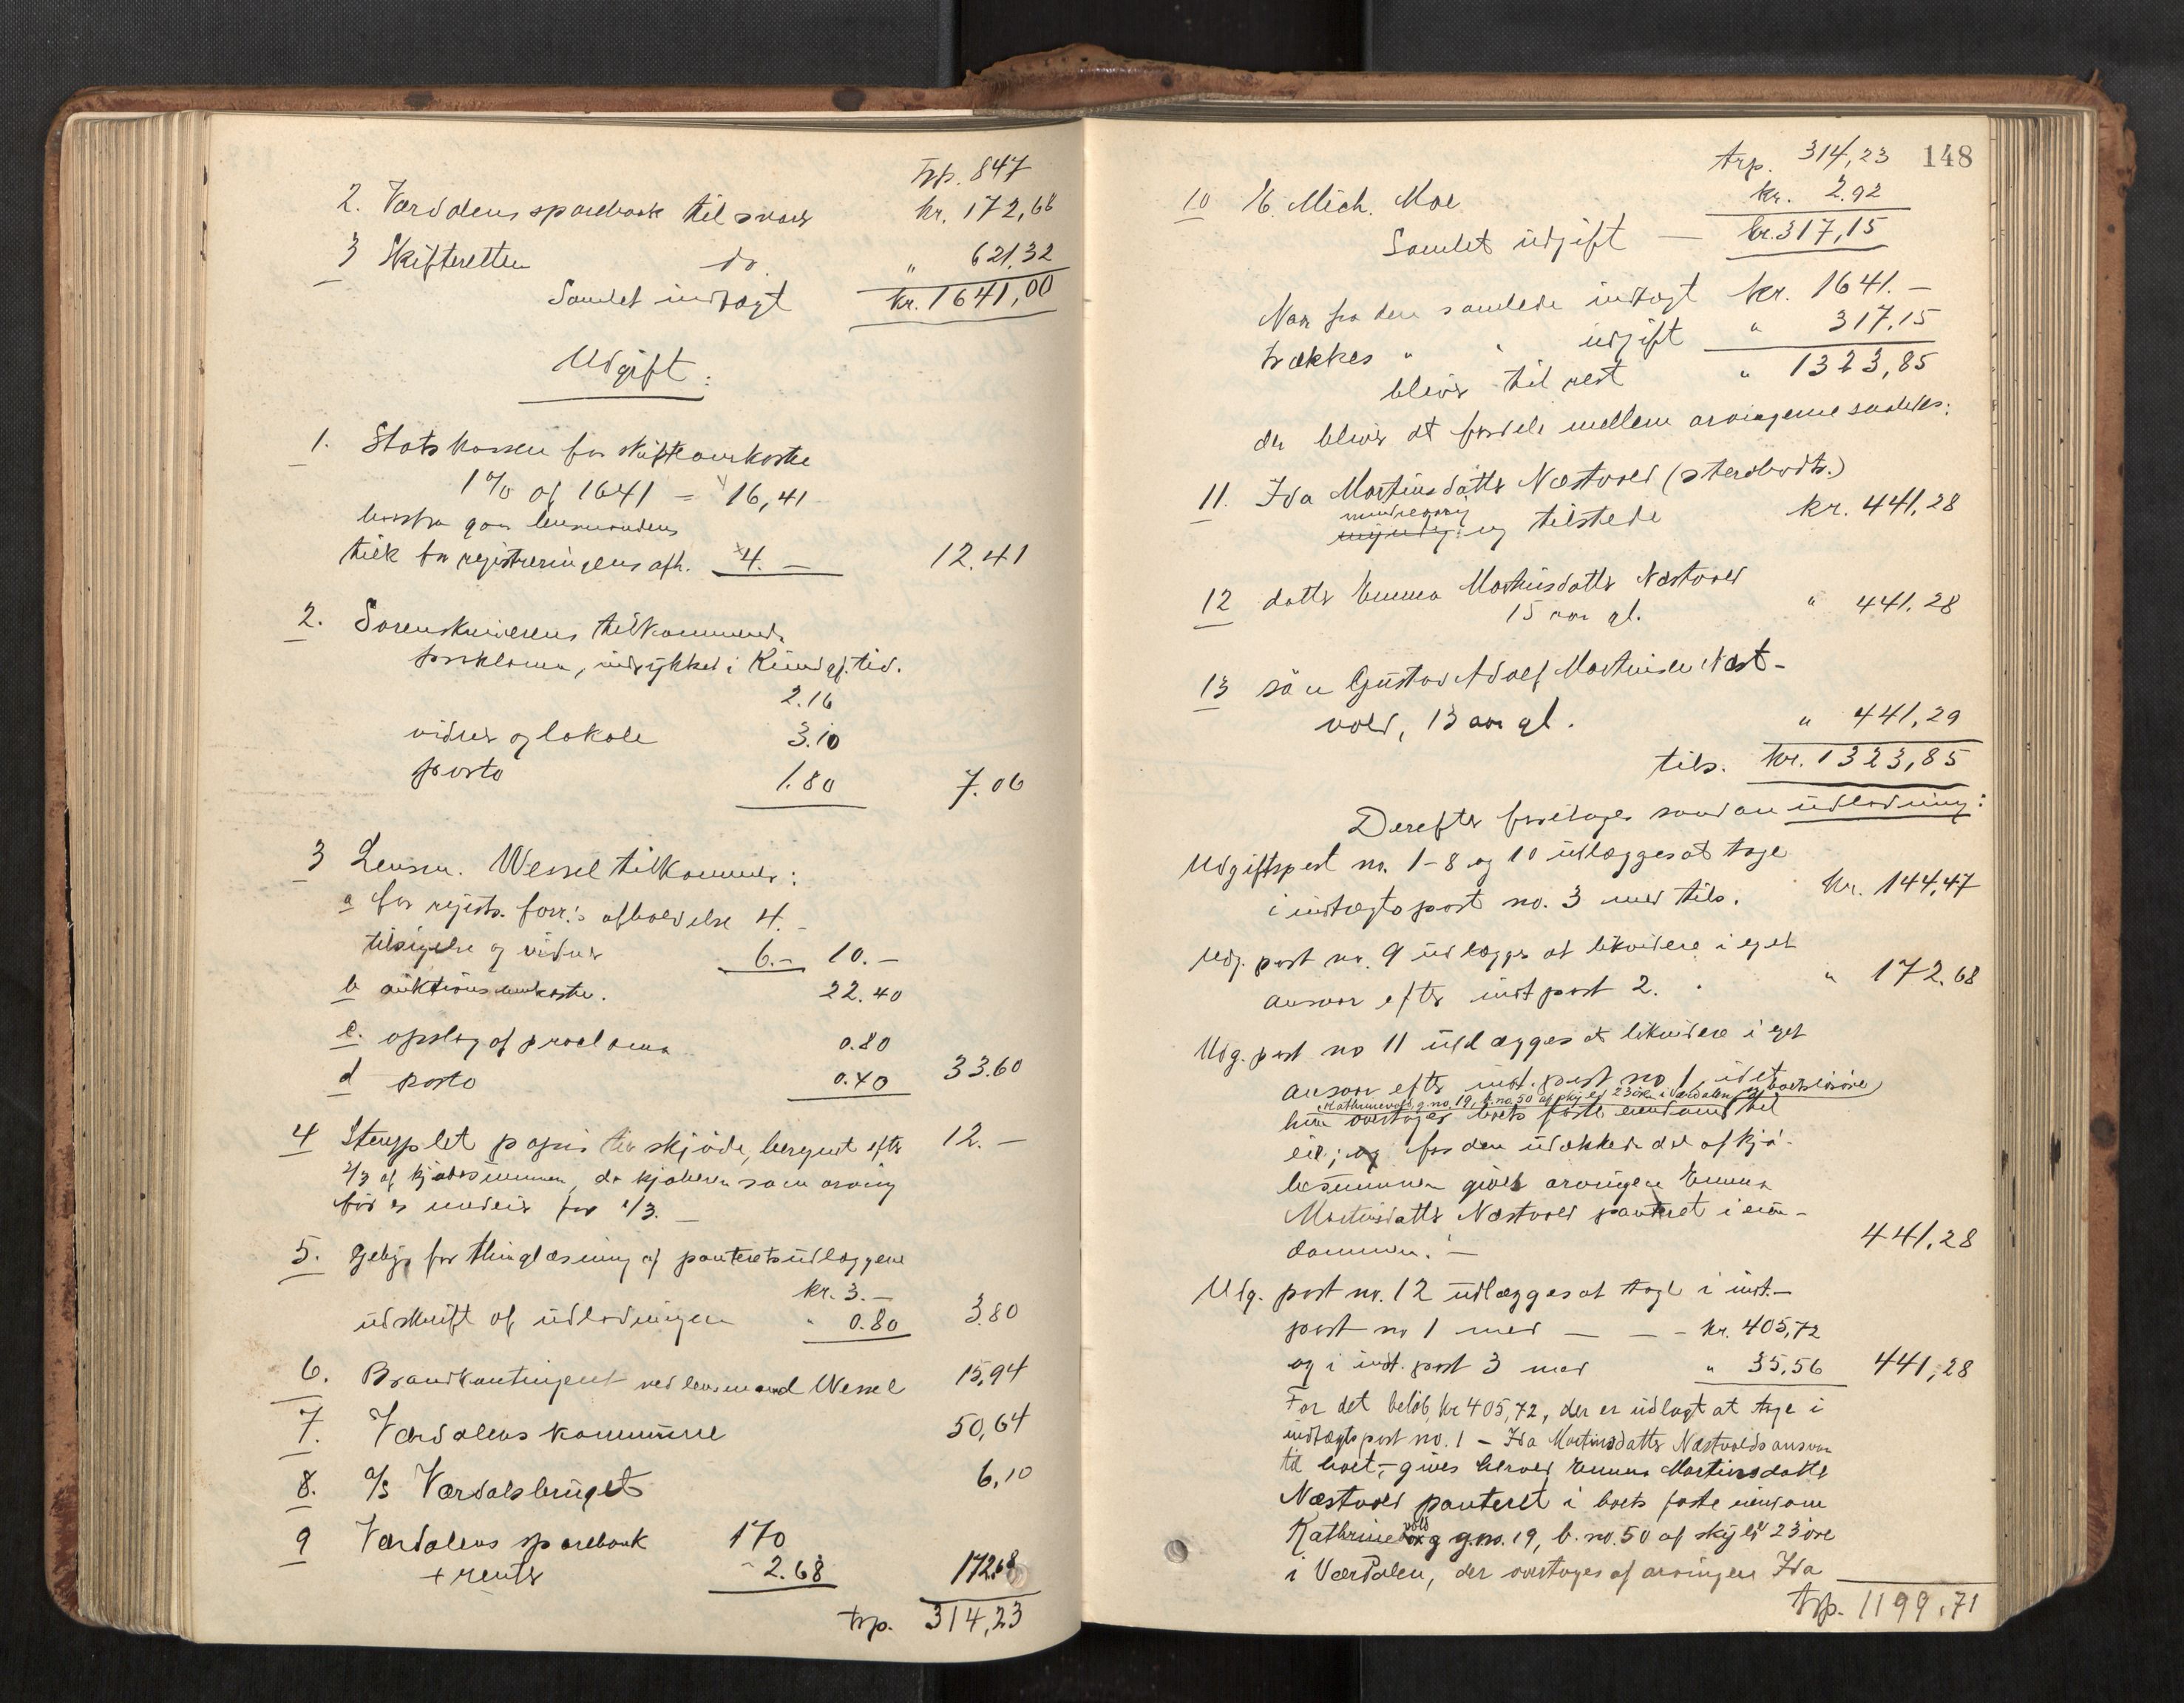 Trp. 847
2. Værdalens sparebank til svar kr. 172,68
3 Skifteretten do. " 621,32
Samlet indtægt kr. 1641,00
Udgift:
1. Statskassen for skifteomkostn.
1% af 1641 = 16,41
herfra gaar lensmandens
tilk. for registreringens afh. 4. — 12.41
2. Sorenskriverens tilkommende
proklama, indrykket i Kundgj. tid.
2.16
vidner og lokale 3.10
porto 1.80 7.06
3 Lensm. Wessel tilkommer:
a for registr. forr.s afholdelse 4. -
tilsigelse og vidner 6.- 10.—
b auktionsomkostn. 22.40
c. opslag af proclama 0.80
d porto 0.40 33.60
4 Stemplet papir til skjøde, beregnet efter 12. —
2/3 af kjøbesummen, da kjøberen som arving
før er medeier for 1/3. —
5. Gebyr for thinglæsning af panteretsudlæggene
kr. 3. —
udskrift af udlodningen " 0.80 3.80
6. Brandkontingent ved lensmand Wessel 15,94
7. Værdalens kommune 50,64
8. A/S Værdalsbruget 6,10
9 Værdalens sparebank 170
+ renter 2.68 172.68
trp. 314,23
148
trp. 314,23
10 E. Mich. Moe kr. 2.92
Samlet udgift — kr. 317,15
Naar fra den samlede indtægt kr. 1641. —
trækkes " " udgift " 317.15
bliver til rest " 1323,85
der bliver at fordele mellem arvingerne saaledes:
11. Ida Martinsdatter Næstvold (sterbodts.)
mindreaarig
myndig og tilstede kr. 441,28
12 datter Emma Martinsdatter Næstvold
15 aar gl. " 441.28
13 søn Gustav Adolf Martinsen Næst-
vold, 13 aar gl. " 441,29
tils. kr. 1323,85
Derefter foretages saadan udlodning:
Udgiftspost no. 1-8 og 10 udlægges at tage
i indtægtspost no. 3 med tils. kr. 144,47
Udg. post no. 9 udlægges at likvidere i eget
ansvar efter indt. post 2. " 172.68
Udg. post no 11 udlægges at likvidere i eget
ansvar efter indt. post no 1, idet
Kathrinevold g. no. 19, b. no. 50 af skyld 23 øre i Værdalen
hun overtager boets faste eiendom til
eie; og for den udækkede del af kjø-
besummen gives arvingen Emma
Martinsdatter Næstvold panteret i eien-
dommen. — 441,28
Udg. post no. 12 udlægges at tage i indt.—
post no 1 med — — - kr. 405,72
og i indt. post 3 med " 35,56 441,28
For det beløb kr 405,72, der er udlagt at tage i
indtægtspost no. 1 – Ida Martinsdatter Næstvolds ansvar
til boet, – gives herved Emma Martinsdatter
Næstvold panteret i boets faste eiendom
vold
Kathrineborg g. no. 19, b. no. 50 af skyld 23 øre
i Værdalen, der overtages af arvingen Ida
trp. 1199,71